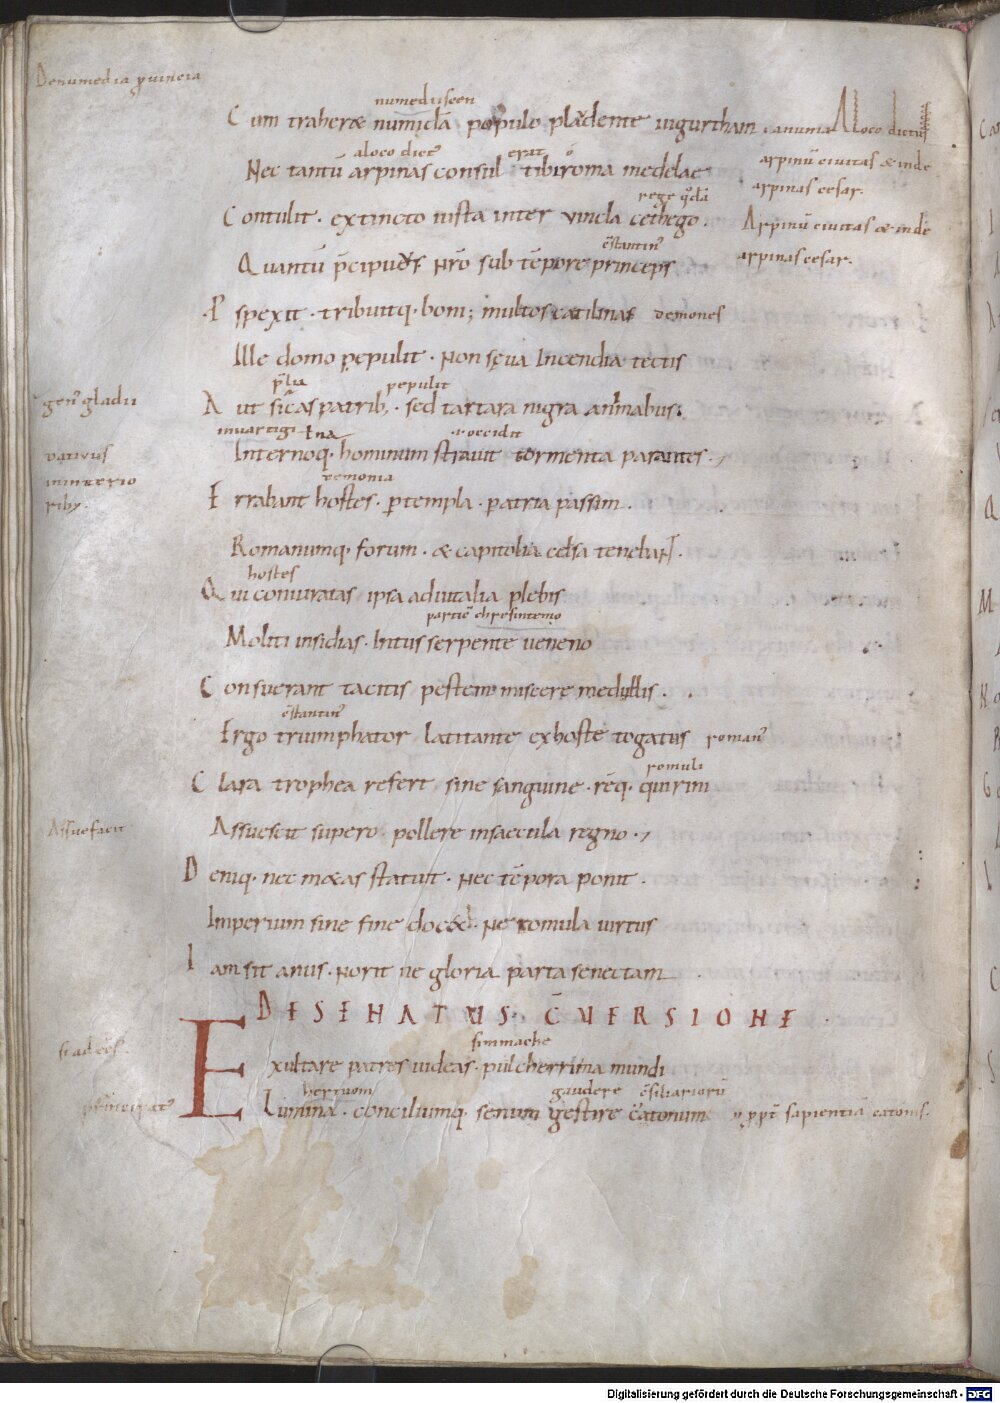 De numedia ꝓuincia
numeduseen
Cum traheret numidā populo plaudente iugurtham
canumia A loco dictus
a loco dict᷒ erat ó
Nec tantū arpinas consul tibi roma medelae
arpinū ciuitas & inde
arpinas cesar.
rege q̄dā
Contulit · extincto iusta inter vincla cethego.
Arpinū ciuitas & inde
arpinas cesar.
c̄stantin᷒
Quantū p̄cipuus nr̄o sub tēpore princeps
Pspexit · tribuitq · boni; multos catilinas demones
Ille domo pepulit · non sęua incendia tectis
p̄lia pepulit
gen᷒ gladii
Aut sicas patrib; · sed tartara nigra animabus.
in uartigi ꝉ na · i · occidit
Internoq · hominum strauit tormenta parantes.
vativus
inınterio
riby.
demonia
Errabant hostes · ꝑ templa · ꝑ atria passim.
Romanumq; forum · & capitolia celsa tenebant.
hostes
Qui coniuratas ipsa ad uitalia plebis
Moliti insidias · intus serpente ueneno
Consuerant tacitis pestem miscere medullis.
c̄stantin᷒
Ergo triumphator latitante ex hoste togatus roman᷒
romuli
Clara trophea refert sine sanguine · rēq · quirini
Assuefacit
Assuescit supero pollere in saecula regno.
Deniq · nec metas statuit · nec tēpora ponit.
Imperium sine fine docet · ne romula uirtus
Iam sit anus · norit ne gloria parta senectam
DE SENATUS C̄VERSIONE
simmache
Exultare patres uideas · pulcherrima mundi
gaudere c̄siliariorū
Lumina · conciliumq; senum gestire catonum ꝓpt̄ sapientiā catonis.
Digitalisierung gefördert durch die Deutsche Forschungsgemeinschaft - DFG